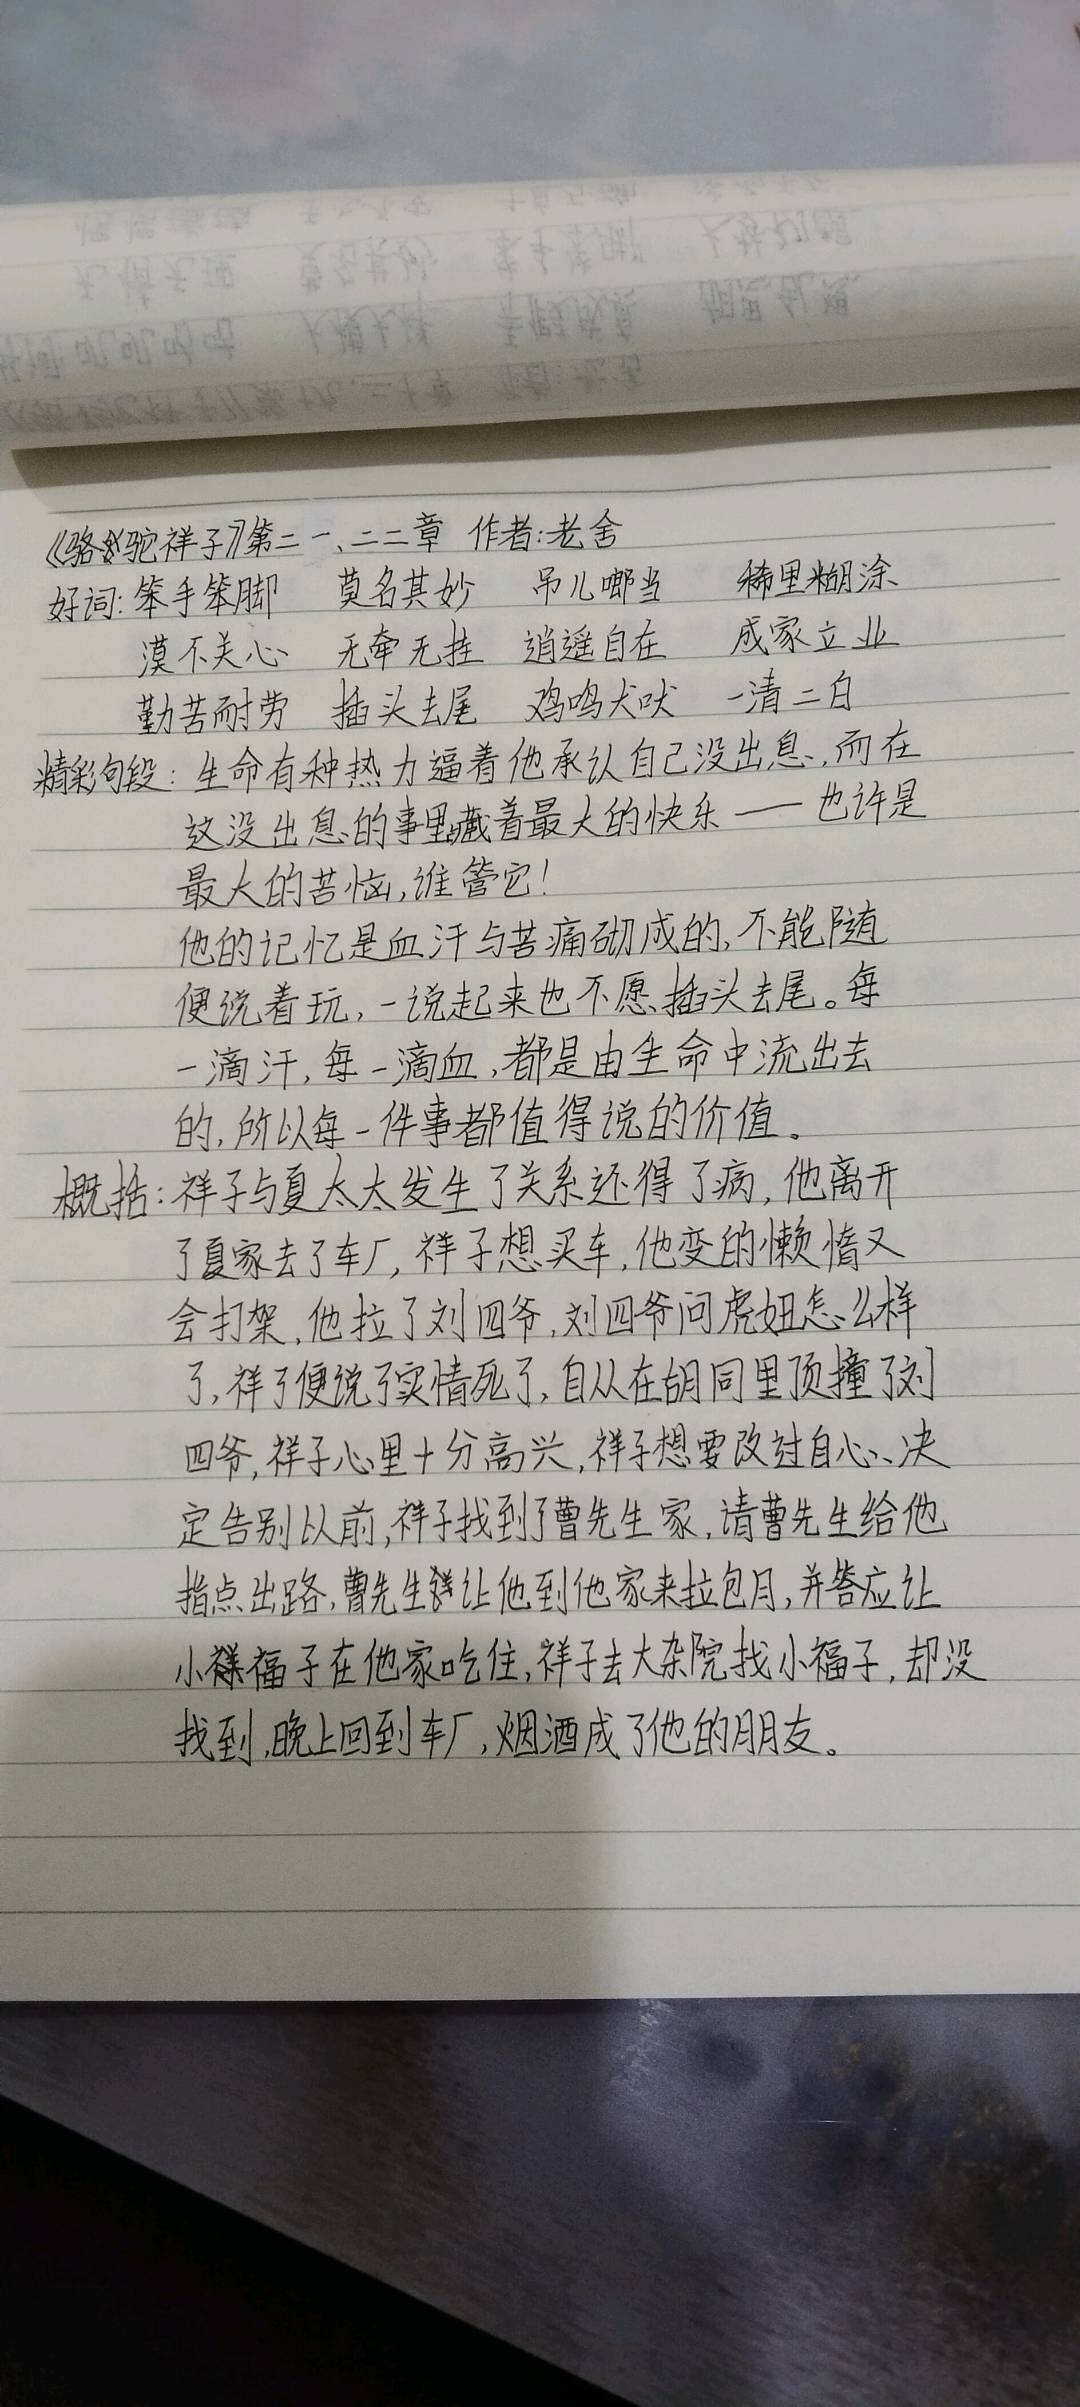 《骆驼祥子》第二一、二二章 作者:老舍
好词:笨手笨脚 莫名其妙 吊儿啷当 稀里糊涂
漠不关心 无牵无挂 逍遥自在 成家立业
勤苦耐劳 插头去尾 鸡鸣犬吠 一清二白
精彩句段:生命有种热力逼着他承认自己没出息,而在
这没出息的事里藏着最大的快乐——也许是
最大的苦恼,谁管它!
他的记忆是血汗与苦痛砌成的,不能随
便说着玩,一说起来也不愿插头去尾。每
一滴汗,每一滴血,都是由生命中流出去
的,所以每一件事都值得说的价值。
概括:祥子与夏太太发生了关系还得了病,他离开
了夏家去了车厂,祥子想买车,他变的懒惰又
会打架,他拉了刘四爷,刘四爷问虎妞怎么样
了,祥子便说了实情死了,自从在胡同里顶撞了刘
四爷,祥子心里十分高兴,祥子想要改过自心、决
定告别以前,祥子找到了曹先生家,请曹先生给他
指点出路,曹先生让他到他家来拉包月,并答应让
小福子在他家吃住,祥子去大杂院找小福子,却没
找到,晚上回到车厂,烟酒成了他的朋友。